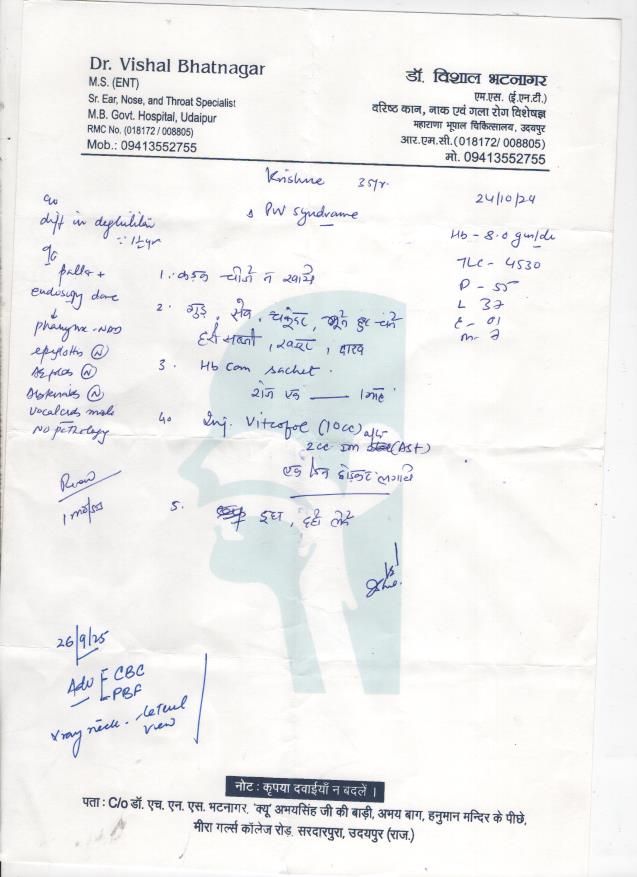 Dr. Vishal Bhatnagar
M.S. (ENT)
Sr. Ear, Nose, and Throat Specialist
M.B. Govt. Hospital, Udaipur
RMC No. (018172 / 008805)
Mob.: 09413552755
डॉ. विशाल भटनागर
एम.एस. (ई.एन.टी.)
वरिष्ठ कान, नाक एवं गला रोग विशेषज्ञ
महाराणा भूपाल चिकित्सालय, उदयपुर
आर.एम.सी.(018172/ 008805)
मो. 09413552755
Krishna 35/yr.
24/10/24
c/o
diff in deglutition
∵ 1½ yr
PW Syndrome
Hb - 8.0 gm/dl
TLC - 4530
P - 55
L 37
E - 01
M - 7
o/e
pallor +
endoscopy done
↓
pharynx - NAD
epiglottis (N)
(N)
(N)
Vocal cords mobile
No pathology
1. कड़क चीजें न खायें
2. गुड़, सेव, चकुंदर, भूने हुए चने
हरी सब्जी, खजूर, दाख
3. Hb Com sachet.
रोज एक —— 1 माह
4. Inj. Vitcofol (10cc)
2cc im (AST)
एक दिन छोड़कर लगायें
5. दूध, दही लेवें
Review
1 month
26/9/25
Adv CBC
PBF
Xray neck - lateral
view
नोट : कृपया दवाईयाँ न बदलें ।
पता : C/o डॉ. एच. एन. एस. भटनागर, 'क्यू' अभयसिंह जी की बाड़ी, अभय बाग, हनुमान मन्दिर के पीछे,
मीरा गर्ल्स कॉलेज रोड़, सरदारपुरा, उदयपुर (राज.)